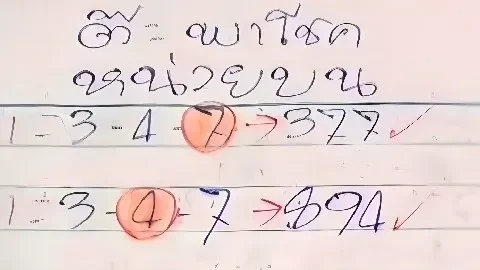 ตี๋ = พาโชค
หน่วยบน
1 = 3 - 4 - 7 → 377 ✓
1 = 3 - 4 - 7 → 894 ✓